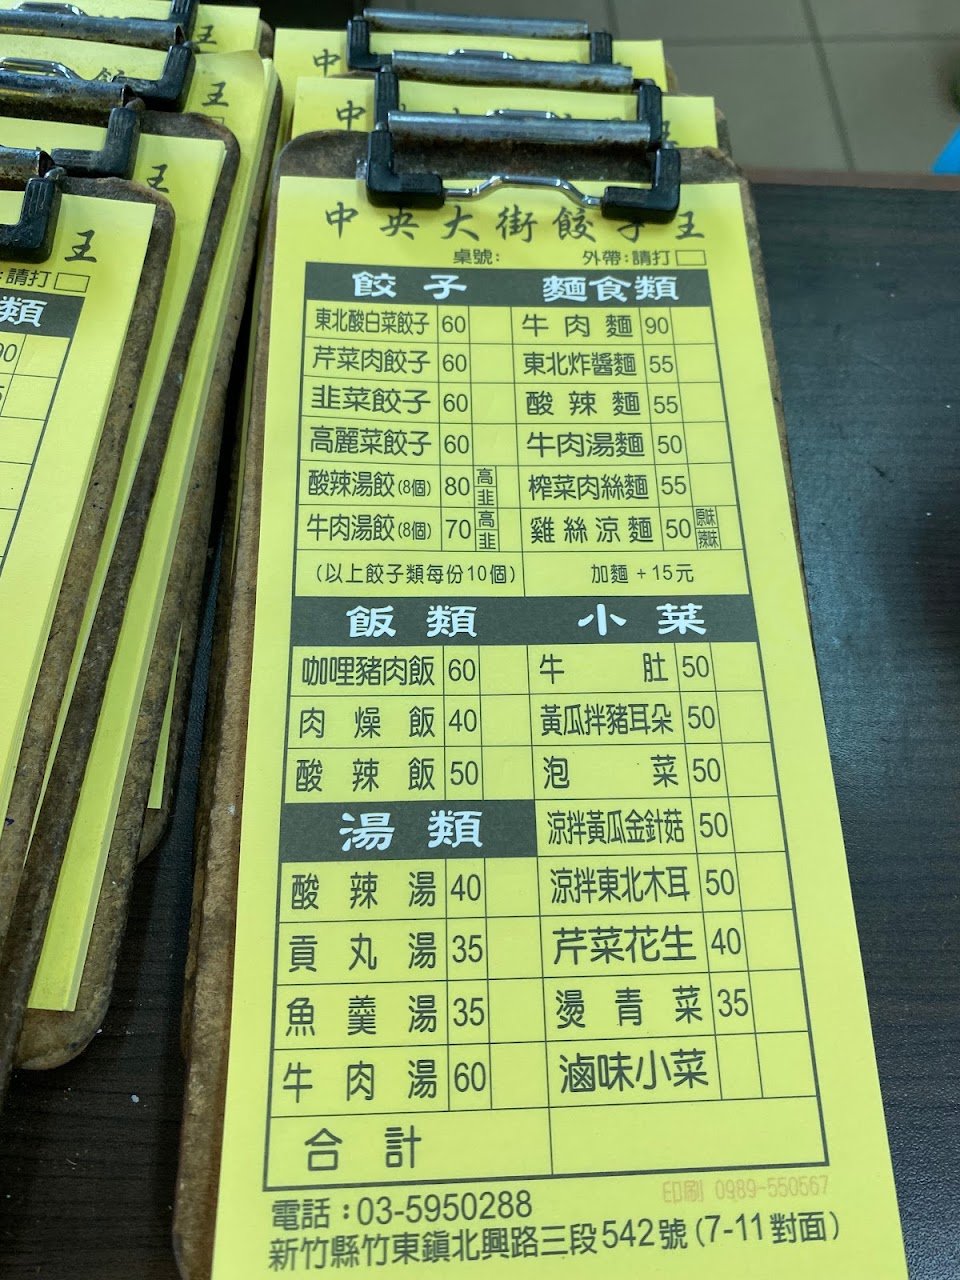 中央大街餃子王
桌號: 外帶:請打
餃子 麵食類
東北酸白菜餃子 60 牛肉麵 90
芹菜肉餃子 60 東北炸醬麵 55
韭菜餃子 60 酸辣麵 55
高麗菜餃子 60 牛肉湯麵 50
酸辣湯餃(8個) 80 高 韭 榨菜肉絲麵 55
牛肉湯餃(8個) 70 高 韭 雞絲涼麵 50 原味 辣味
(以上餃子類每份10個) 加麵+15元
飯類 小菜
咖哩豬肉飯 60 牛肚 50
肉燥飯 40 黃瓜拌豬耳朵 50
酸辣飯 50 泡菜 50
湯類 涼拌黃瓜金針菇 50
酸辣湯 40 涼拌東北木耳 50
貢丸湯 35 芹菜花生 40
魚羹湯 35 燙青菜 35
牛肉湯 60 滷味小菜
合計
印刷 0989-550567
電話:03-5950288
新竹縣竹東鎮北興路三段542號(7-11對面)
中
王
中
王
王
王
王
:請打
類
90